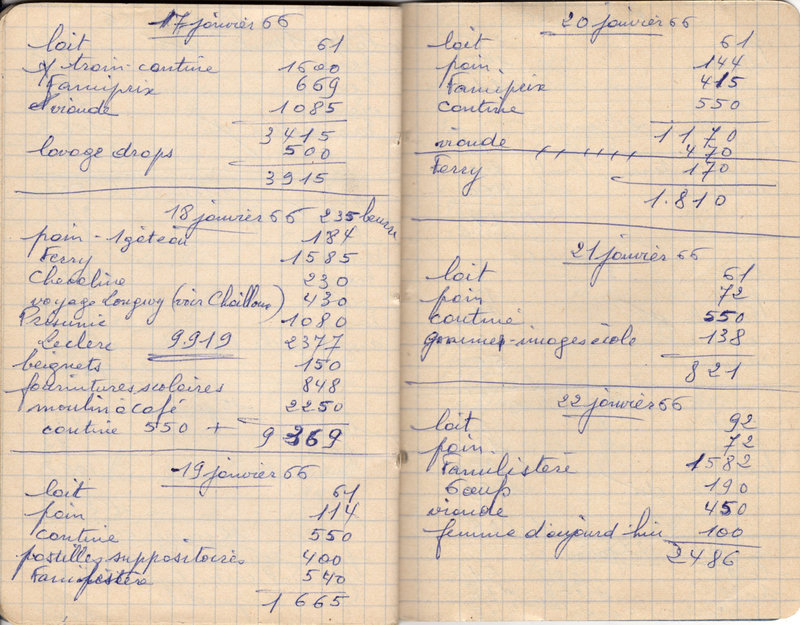 17 janvier 66
lait 61
train-cantine 1600
Familprix 669
viande 1085
3415
lavage draps 500
3915
18 janvier 66 235 beurre
pain - 1 gâteau 184
Ferry 1585
Chevaline 230
voyage Longwy (voir Chailloux) 430
Prisunic 1080
Leclerc 9919 2377
beignets 150
fournitures scolaires 848
moulin à café 2250
cantine 550 + 9369
19 janvier 66
lait 61
pain 114
cantine 550
pastilles suppositoires 400
540
1665
20 janvier 66
lait 61
pain 144
Familprix 415
cantine 550
1170
viande 470
Ferry 170
1.810
21 janvier 66
lait 61
pain 72
cantine 550
gommes-images école 138
821
22 janvier 66
lait 92
pain 72
Familistère 1582
Coeup 190
viande 450
femme d'aujourd'hui 100
2486